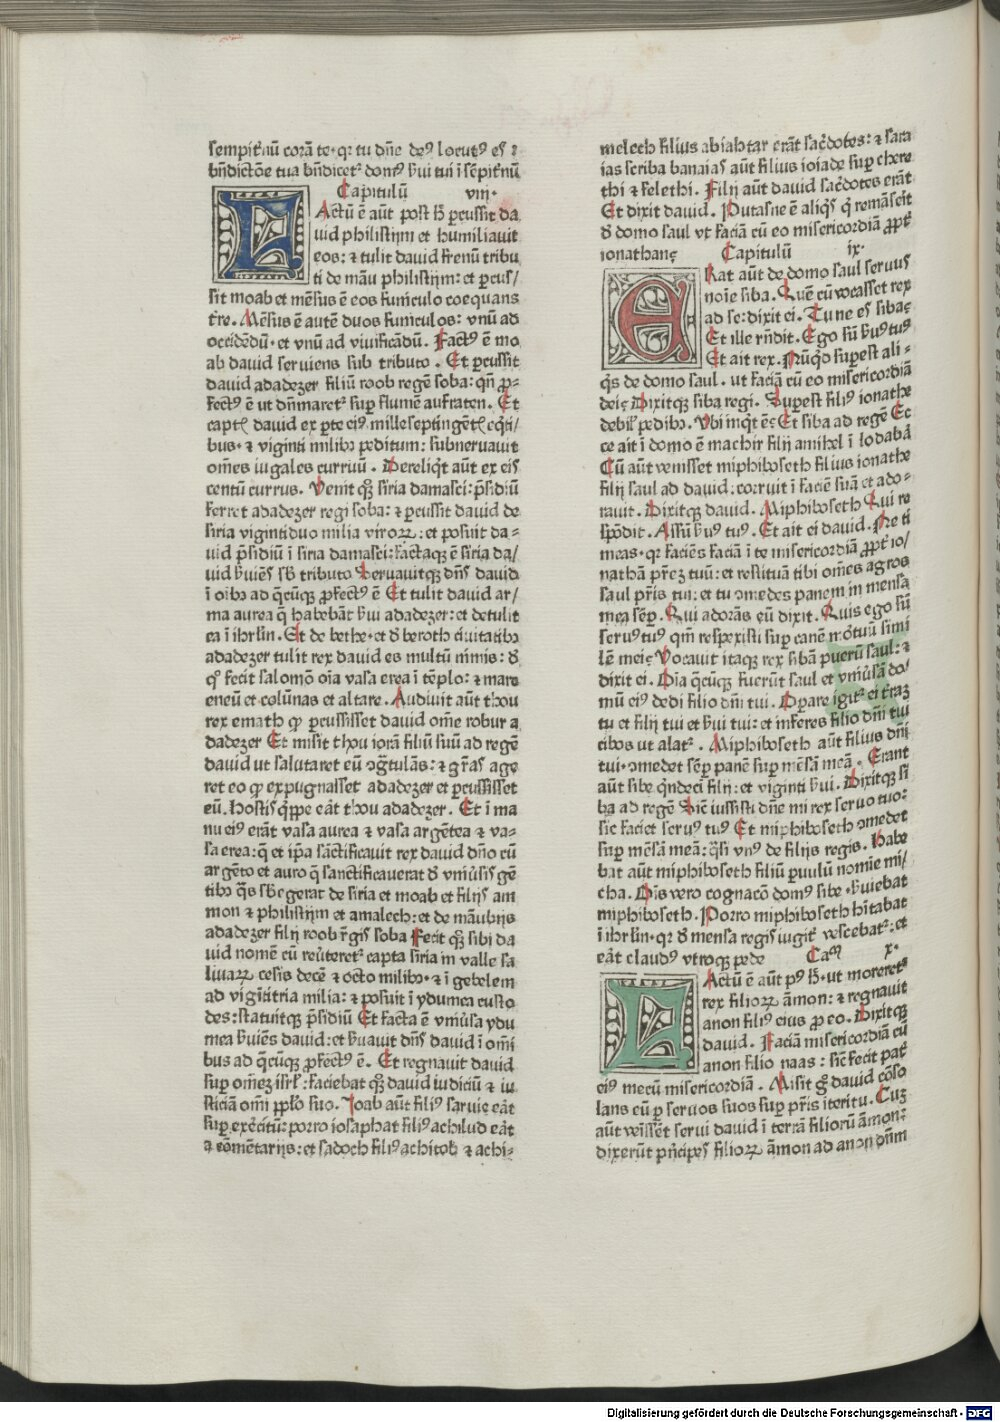 sempit̾nū corā te· qꝛ tu dn̄e deꝰ locutꝰ es ⁊
bn̄dictōe tua bn̄dicet᷑ domꝰ s̾ui tui ī sēpit̾nū
Capitulū viii·
FActū ē aūt post h̄ ꝑcussit da
uid philistijm et humiliauit
eos: ⁊ tulit dauid frenū tribu
ti de māu philistijm: et ꝑcus/
sit moab et mēsus ē eos funiculo coequans
t̾re. Mēsus ē autē duos funiculos: vnū ad
occidēdū· et vnū ad viuificādū. Factꝰ ē mo
ab dauid seruiens sub tributo. Et ꝑcussit
dauid adadezer filiū roob regē soba: qn̄ ꝓ-
fectꝰ ē ut dn̄maret᷑ suꝑ flumē aufraten. Et
captꝭ dauid ex ꝑte eiꝰ mille septingētꝭ eq̄ti/
bus· ⁊ viginti milibꝰ peditum: subneruauit
om̄es iugales curruū. Dereliq̄t aūt ex eis
centū currus. Venit qꝫ siria damasci: p̄sidiū
ferret adadezer regi soba: ⁊ ꝑcussit dauid de
siria viginti duo milia viroꝝ: et posuit da-
uid p̄sidiū ī siria damasci: factaqꝫ ē siria da/
uid s̾uiēs sb̄ tributo Seruauitqꝫ dn̄s dauid
ī oībꝰ ad q̄cūqꝫ ꝓfectꝰ ē Et tulit dauid ar/
ma aurea q̄ habebāt s̾ui adadezer: et detulit
ea ī ihrlm̄. Et de bethe· et d̾ beroth ciuitatibꝰ
adadezer tulit rex dauid es multū nimis: d̾
qͦ fecit salomō oīa vasa erea ī tēplo: ⁊ mare
eneū et colūnas et altare. Audiuit aūt thou
rex emath qͥ ꝑcussisset dauid om̄e robur a
dadezer Et misit thou iorā filiū suū ad regē
dauid ut salutaret eū ↄgͣtulās: ⁊ gr̄as age
ret eo qͥ expugnasset adadezer et ꝑcussisset
eū. Hostis q̄ppe eāt thou adadezer. Et ī ma
nu eiꝰ erāt vasa aurea ⁊ vasa argētea ⁊ va-
sa erea: q̄ et ip̄a sāctificauit rex dauid dn̄o cū
argēto et auro q̄ sanctificauerat d̾ vniu̾sis gē
tibꝰ q̄s sb̄egerat de siria et moab et filijs am
mon ⁊ philistijm et amalech: et de māubijs
adadezer filij roob r̄gis soba Fecit qꝫ sibi da
uid nomē cū reu̾teret᷑ capta siria in valle sa
linaꝝ cesis decē ⁊ octo milibꝰ· ⁊ ī gebelem
ad vigītitria milia: ⁊ posuit ī ydumea custo
des: statuitqꝫ p̄sidiū Et facta ē vniu̾sa ydu
mea s̾uiēs dauid: et s̾uauit dn̄s dauid ī om̄i
bus ad q̄cūqꝫ ꝓfectꝰ ē. Et regnauit dauid
suꝑ om̄eꝫ isrl̄: faciebat qꝫ dauid iudiciū ⁊ iu
sticiā om̄i ppl̄o suo. Ioab aūt filiꝰ saruie eāt
suꝑ exc̾itū: porro iosaphat filiꝰ achilud eāt
a com̄entarijs: et sadoch filiꝰ achitob ⁊ achi-
melech filius abiahtar erāt sac̾dotes: ⁊ sara
ias scriba banaias aūt filius ioiade suꝑ chere
thi ⁊ felethi. Filij aūt dauid sac̾dotes erāt
Et dixit dauid. Putasne ē aliqͥs qͥ remāserit
d̾ domo saul vt faciā cū eo misericordiā ꝓpt̾
ionathanę Capitulū ix·
ERat aūt de domo saul seruus
noīe siba. Quē cū vocasset rex
ad se: dixit ei. Tu ne es siba⸝
Et ille rn̄dit. Ego sū s̾uꝰ tuꝰ
Et ait rex. Nūqͥd suꝑest ali-
qͥs de domo saul. ut faciā cū eo misericordiā
dei⸝ Dixitqꝫ siba regi. Suꝑest filiꝰ ionathe
debil̾ pedibꝰ. Vbi inqͥt ē⸝ Et siba ad regē Ec
ce ait ī domo ē machir filij amihel ī lodabā
Cū aūt venisset miphiboseth filius ionathe
filij saul ad dauid: corruit ī faciē suā et ado-
rauit. Dixitqꝫ dauid. Miphiboseth Qui re
spōdit. Assū s̾uꝰ tuꝰ. Et ait ei dauid. Ne ti
meas· qꝛ faciēs faciā ī te misericordiā ꝓpt̾ io/
nathā pr̄eꝫ tuū: et restituā tibi om̄es agros
saul pr̄is tui: et tu ↄmedes panem in mensa
mea sēꝑ. Qui adorās eū dixit. Quis ego sū
seruꝰ tuꝰ qm̄ respexisti suꝑ canē mo̾tuū simi
lē mei⸝ Vocauit itaqꝫ rex sibā puerū saul: ⁊
dixit ei. Oīa q̄cūqꝫ fuerūt saul et vniu̾sā do/
mū eiꝰ dedi filio dn̄i tui. Oꝑare igit᷑ ei t̾raꝫ
tu et filij tui et s̾ui tui: et inferes filio dn̄i tui
cibos ut alat᷑. Miphiboseth aūt filius dn̄i
tui· ↄmedet sēꝑ panē suꝑ mēsā meā. Erant
aūt sibe qͥndeci filij: et viginti s̾ui. Dixitqꝫ si
ba ad regē Sic iussisti dn̄e mi rex seruo tuo:
sic faciet seruꝰ tuꝰ Et miphiboseth ↄmedet
suꝑ mēsā meā: q̄si vnꝰ de filijs regis. Habe
bat aūt miphiboseth filiū ꝑuulū nomie mi/
cha. Ois vero cognacō domꝰ sibe· s̾uiebat
miphiboseth. Porro miphiboseth hītabat
ī ihrlm̄· qꝛ d̾ mensa regis iugit̾ vescebat᷑: et
eāt claudꝰ vtroqꝫ pede Caᵐ x·
FActū ē aūt pꝰ h̄· ut moreret᷑
rex filioꝝ āmon: ⁊ regnauit
anon filiꝰ eius ꝓ eo. Dixitqꝫ
dauid. Faciā misericordiā cū
anon filio naas: sic̄ fecit pat̾
eiꝰ mecū misericordiā. Misit gͦ dauid cōso
lans eū ꝑ seruos suos suꝑ pr̄is īteritu. Cuꝫ
aūt veīssēt serui dauid ī terrā filiorū āmon:
dixerūt pn̄cipes filioꝝ āmon ad anon dn̄m
Digitalisierung gefördert durch die Deutsche Forschungsgemeinschaft - DFG